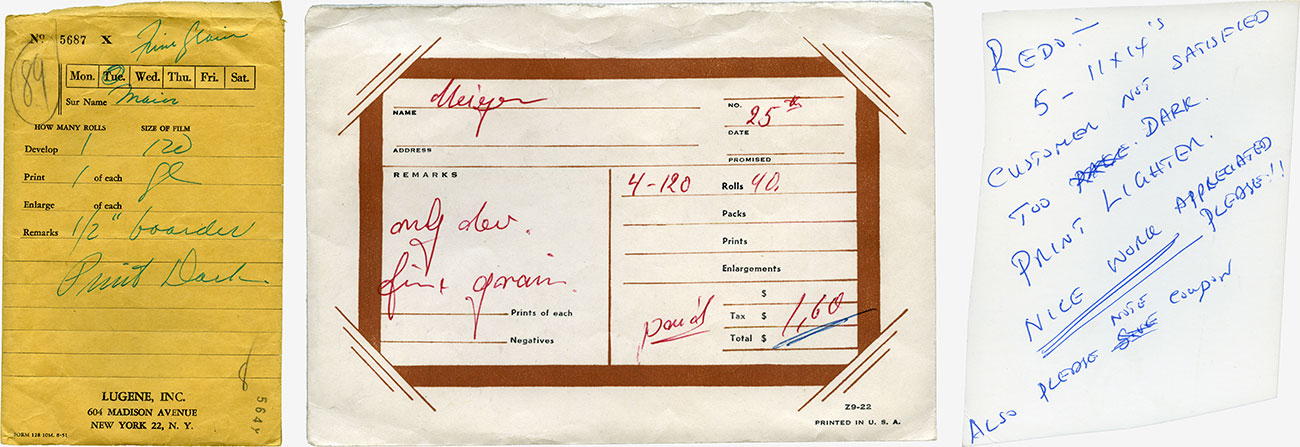 Nº 5687 X
Fine Grain
89
Mon. Tue. Wed. Thu. Fri. Sat.
Sur Name Maier
HOW MANY ROLLS SIZE OF FILM
Develop 1 120
Print 1 of each gl
Enlarge of each
Remarks 1/2" boarder
Print Dark
LUGENE, INC.
604 MADISON AVENUE
NEW YORK 22, N. Y.
FORM 128 10M. 8-51
564Y
NAME Meiyer
ADDRESS
NO.
25th
DATE
PROMISED
REMARKS
only dev.
fine grain.
Prints of each
Negatives
4-120 Rolls 40.
Packs
Prints
Enlargements
$
paid Tax $ 1,60
Total $
Z9-22
PRINTED IN U. S. A.
REDO:-
5 - 11X14'S
CUSTOMER NOT SATISFIED
TOO DARK.
PRINT LIGHTER.
NICE WORK APPRECIATED
PLEASE!!
ALSO PLEASE NOTE COUPON